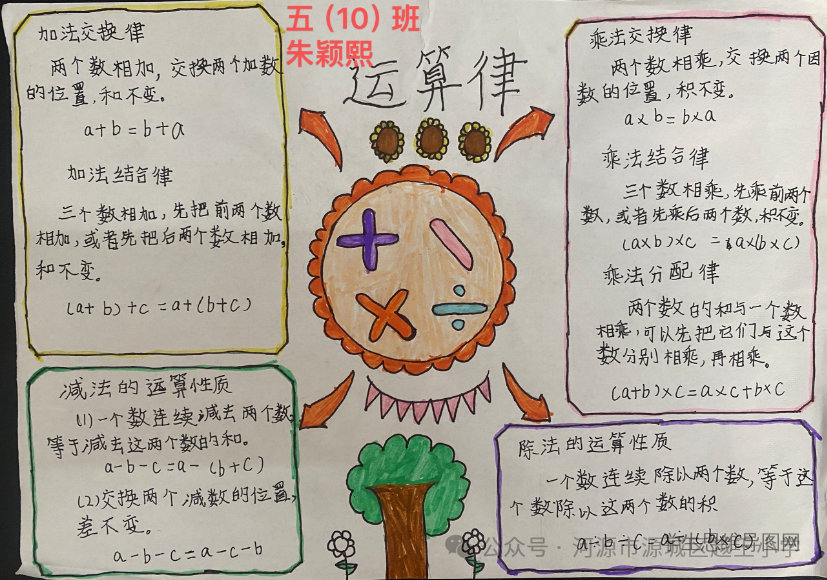 五（10）班
朱颖熙
运算律
加法交换律
两个数相加，交换两个加数
的位置，和不变。
a+b=b+a
加法结合律
三个数相加，先把前两个数
相加，或者先把后两个数相加，
和不变。
(a+b)+c=a+(b+c)
减法的运算性质
(1)一个数连续减去两个数
等于减去这两个数的和。
a-b-c=a-(b+c)
(2)交换两个减数的位置，
差不变。
a-b-c=a-c-b
乘法交换律
两个数相乘，交换两个因
数的位置，积不变。
a×b=b×a
乘法结合律
三个数相乘，先乘前两个
数，或者先乘后两个数，积不变。
(a×b)×c=a×(b×c)
乘法分配律
两个数的和与一个数
相乘，可以先把它们与这个
数分别相乘，再相乘。
(a+b)×c=a×c+b×c
除法的运算性质
一个数连续除以两个数，等于这
个数除以这两个数的积
a÷b÷c=a÷(b×c)
公众号·河源市源城区
小学
图网